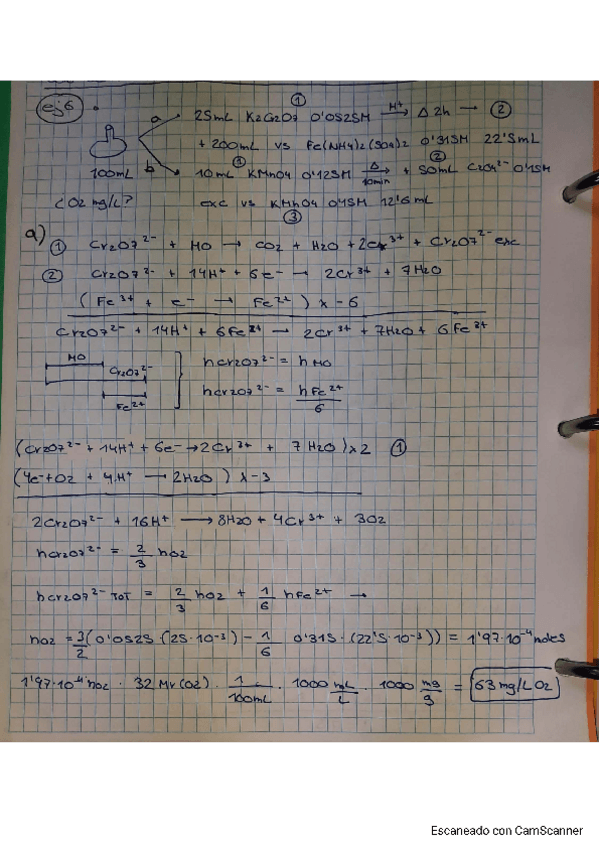 ej6
① 
a 25mL K2Cr2O7 0'052SM H+→ Δ 2h → ②
+ 200mL vs Fe(NH4)2(SO4)2 0'31SM 22'5mL
100mL b 10mL KMnO4 0'12SM Δ 10min → + 50mL C2O4²⁻ 0'1SM
① ②
¿O2 mg/L? exc vs KMnO4 0'1SM 12'6mL
③
a) ① Cr2O7²⁻ + MO → CO2 + H2O + 2Cr³⁺ + Cr2O7²⁻ exc
② Cr2O7²⁻ + 14H⁺ + 6e⁻ → 2Cr³⁺ + 7H2O
(Fe³⁺ + e⁻ → Fe²⁺) x-6
Cr2O7²⁻ + 14H⁺ + 6Fe²⁺ → 2Cr³⁺ + 7H2O + 6Fe³⁺
MO Cr2O7²⁻ Fe²⁺ } nCr2O7²⁻ = nMO
nCr2O7²⁻ = nFe²⁺/6
(Cr2O7²⁻ + 14H⁺ + 6e⁻ → 2Cr³⁺ + 7H2O) x2 ①
(4e⁻ + O2 + 4H⁺ → 2H2O) x-3
2Cr2O7²⁻ + 16H⁺ → 8H2O + 4Cr³⁺ + 3O2
nCr2O7²⁻ = 2/3 nO2
nCr2O7²⁻ TOT = 2/3 nO2 + 1/6 nFe²⁺ →
nO2 = 3/2 (0'052S (25·10⁻³) - 1/6 0'31S·(22'5·10⁻³)) = 1'97·10⁻⁴ moles
1'97·10⁻⁴ nO2 · 32 Mr(O2) · 1/100mL · 1000 mL/L · 1000 mg/g = 63 mg/L O2
Escaneado con CamScanner